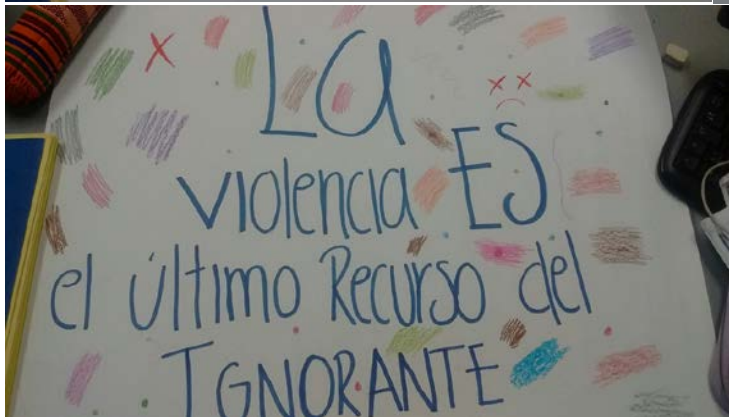 La
violencia ES
el último Recurso del
IGNORANTE